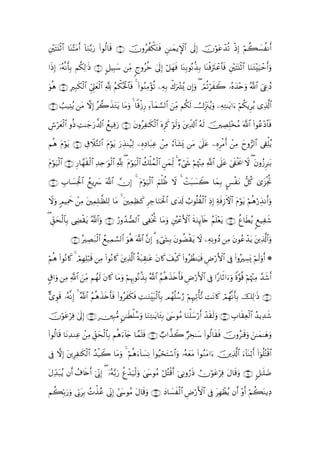 أَنفُسَكُمْ إِذْ تُدْعَوْنَ إِلَى ٱلْإِيمَٰنِ فَتَكْفُرُونَ ۝١٠ قَالُوا۟ رَبَّنَآ أَمَتَّنَا ٱثْنَتَيْنِ
وَأَحْيَيْتَنَا ٱثْنَتَيْنِ فَٱعْتَرَفْنَا بِذُنُوبِنَا فَهَلْ إِلَىٰ خُرُوجٍ مِّن سَبِيلٍ ۝١١ ذَٰلِكُم بِأَنَّهُۥٓ إِذَا
دُعِىَ ٱللَّهُ وَحْدَهُۥ كَفَرْتُمْ ۖ وَإِن يُشْرَكْ بِهِۦ تُؤْمِنُوا۟ ۚ فَٱلْحُكْمُ لِلَّهِ ٱلْعَلِىِّ ٱلْكَبِيرِ ۝١٢ هُوَ
ٱلَّذِى يُرِيكُمْ ءَايَٰتِهِۦ وَيُنَزِّلُ لَكُم مِّنَ ٱلسَّمَآءِ رِزْقًا ۚ وَمَا يَتَذَكَّرُ إِلَّا مَن يُنِيبُ ۝١٣
فَٱدْعُوا۟ ٱللَّهَ مُخْلِصِينَ لَهُ ٱلدِّينَ وَلَوْ كَرِهَ ٱلْكَٰفِرُونَ ۝١٤ رَفِيعُ ٱلدَّرَجَٰتِ ذُو ٱلْعَرْشِ
يُلْقِى ٱلرُّوحَ مِنْ أَمْرِهِۦ عَلَىٰ مَن يَشَآءُ مِنْ عِبَادِهِۦ لِيُنذِرَ يَوْمَ ٱلتَّلَاقِ ۝١٥ يَوْمَ هُم
بَٰرِزُونَ ۖ لَا يَخْفَىٰ عَلَى ٱللَّهِ مِنْهُمْ شَىْءٌ ۚ لِّمَنِ ٱلْمُلْكُ ٱلْيَوْمَ ۖ لِلَّهِ ٱلْوَٰحِدِ ٱلْقَهَّارِ ۝١٦ ٱلْيَوْمَ
تُجْزَىٰ كُلُّ نَفْسٍۭ بِمَا كَسَبَتْ ۚ لَا ظُلْمَ ٱلْيَوْمَ ۚ إِنَّ ٱللَّهَ سَرِيعُ ٱلْحِسَابِ ۝١٧
وَأَنذِرْهُمْ يَوْمَ ٱلْءَازِفَةِ إِذِ ٱلْقُلُوبُ لَدَى ٱلْحَنَاجِرِ كَٰظِمِينَ ۚ مَا لِلظَّٰلِمِينَ مِنْ حَمِيمٍ وَلَا
شَفِيعٍ يُطَاعُ ۝١٨ يَعْلَمُ خَآئِنَةَ ٱلْأَعْيُنِ وَمَا تُخْفِى ٱلصُّدُورُ ۝١٩ وَٱللَّهُ يَقْضِى بِٱلْحَقِّ ۖ
وَٱلَّذِينَ يَدْعُونَ مِن دُونِهِۦ لَا يَقْضُونَ بِشَىْءٍ ۗ إِنَّ ٱللَّهَ هُوَ ٱلسَّمِيعُ ٱلْبَصِيرُ ۝٢٠
۞ أَوَلَمْ يَسِيرُوا۟ فِى ٱلْأَرْضِ فَيَنظُرُوا۟ كَيْفَ كَانَ عَٰقِبَةُ ٱلَّذِينَ كَانُوا۟ مِن قَبْلِهِمْ ۚ كَانُوا۟ هُمْ
أَشَدَّ مِنْهُمْ قُوَّةً وَءَاثَارًا فِى ٱلْأَرْضِ فَأَخَذَهُمُ ٱللَّهُ بِذُنُوبِهِمْ وَمَا كَانَ لَهُم مِّنَ ٱللَّهِ مِن وَاقٍ
۝٢١ ذَٰلِكَ بِأَنَّهُمْ كَانَت تَّأْتِيهِمْ رُسُلُهُم بِٱلْبَيِّنَٰتِ فَكَفَرُوا۟ فَأَخَذَهُمُ ٱللَّهُ ۚ إِنَّهُۥ قَوِىٌّ
شَدِيدُ ٱلْعِقَابِ ۝٢٢ وَلَقَدْ أَرْسَلْنَا مُوسَىٰ بِـَٔايَٰتِنَا وَسُلْطَٰنٍ مُّبِينٍ ۝٢٣ إِلَىٰ فِرْعَوْنَ
وَهَٰمَٰنَ وَقَٰرُونَ فَقَالُوا۟ سَٰحِرٌ كَذَّابٌ ۝٢٤ فَلَمَّا جَآءَهُم بِٱلْحَقِّ مِنْ عِندِنَا قَالُوا۟
ٱقْتُلُوٓا۟ أَبْنَآءَ ٱلَّذِينَ ءَامَنُوا۟ مَعَهُۥ وَٱسْتَحْيُوا۟ نِسَآءَهُمْ ۚ وَمَا كَيْدُ ٱلْكَٰفِرِينَ إِلَّا فِى
ضَلَٰلٍ ۝٢٥ وَقَالَ فِرْعَوْنُ ذَرُونِىٓ أَقْتُلْ مُوسَىٰ وَلْيَدْعُ رَبَّهُۥٓ ۖ إِنِّىٓ أَخَافُ أَن يُبَدِّلَ
دِينَكُمْ أَوْ أَن يُظْهِرَ فِى ٱلْأَرْضِ ٱلْفَسَادَ ۝٢٦ وَقَالَ مُوسَىٰٓ إِنِّى عُذْتُ بِرَبِّى وَرَبِّكُم